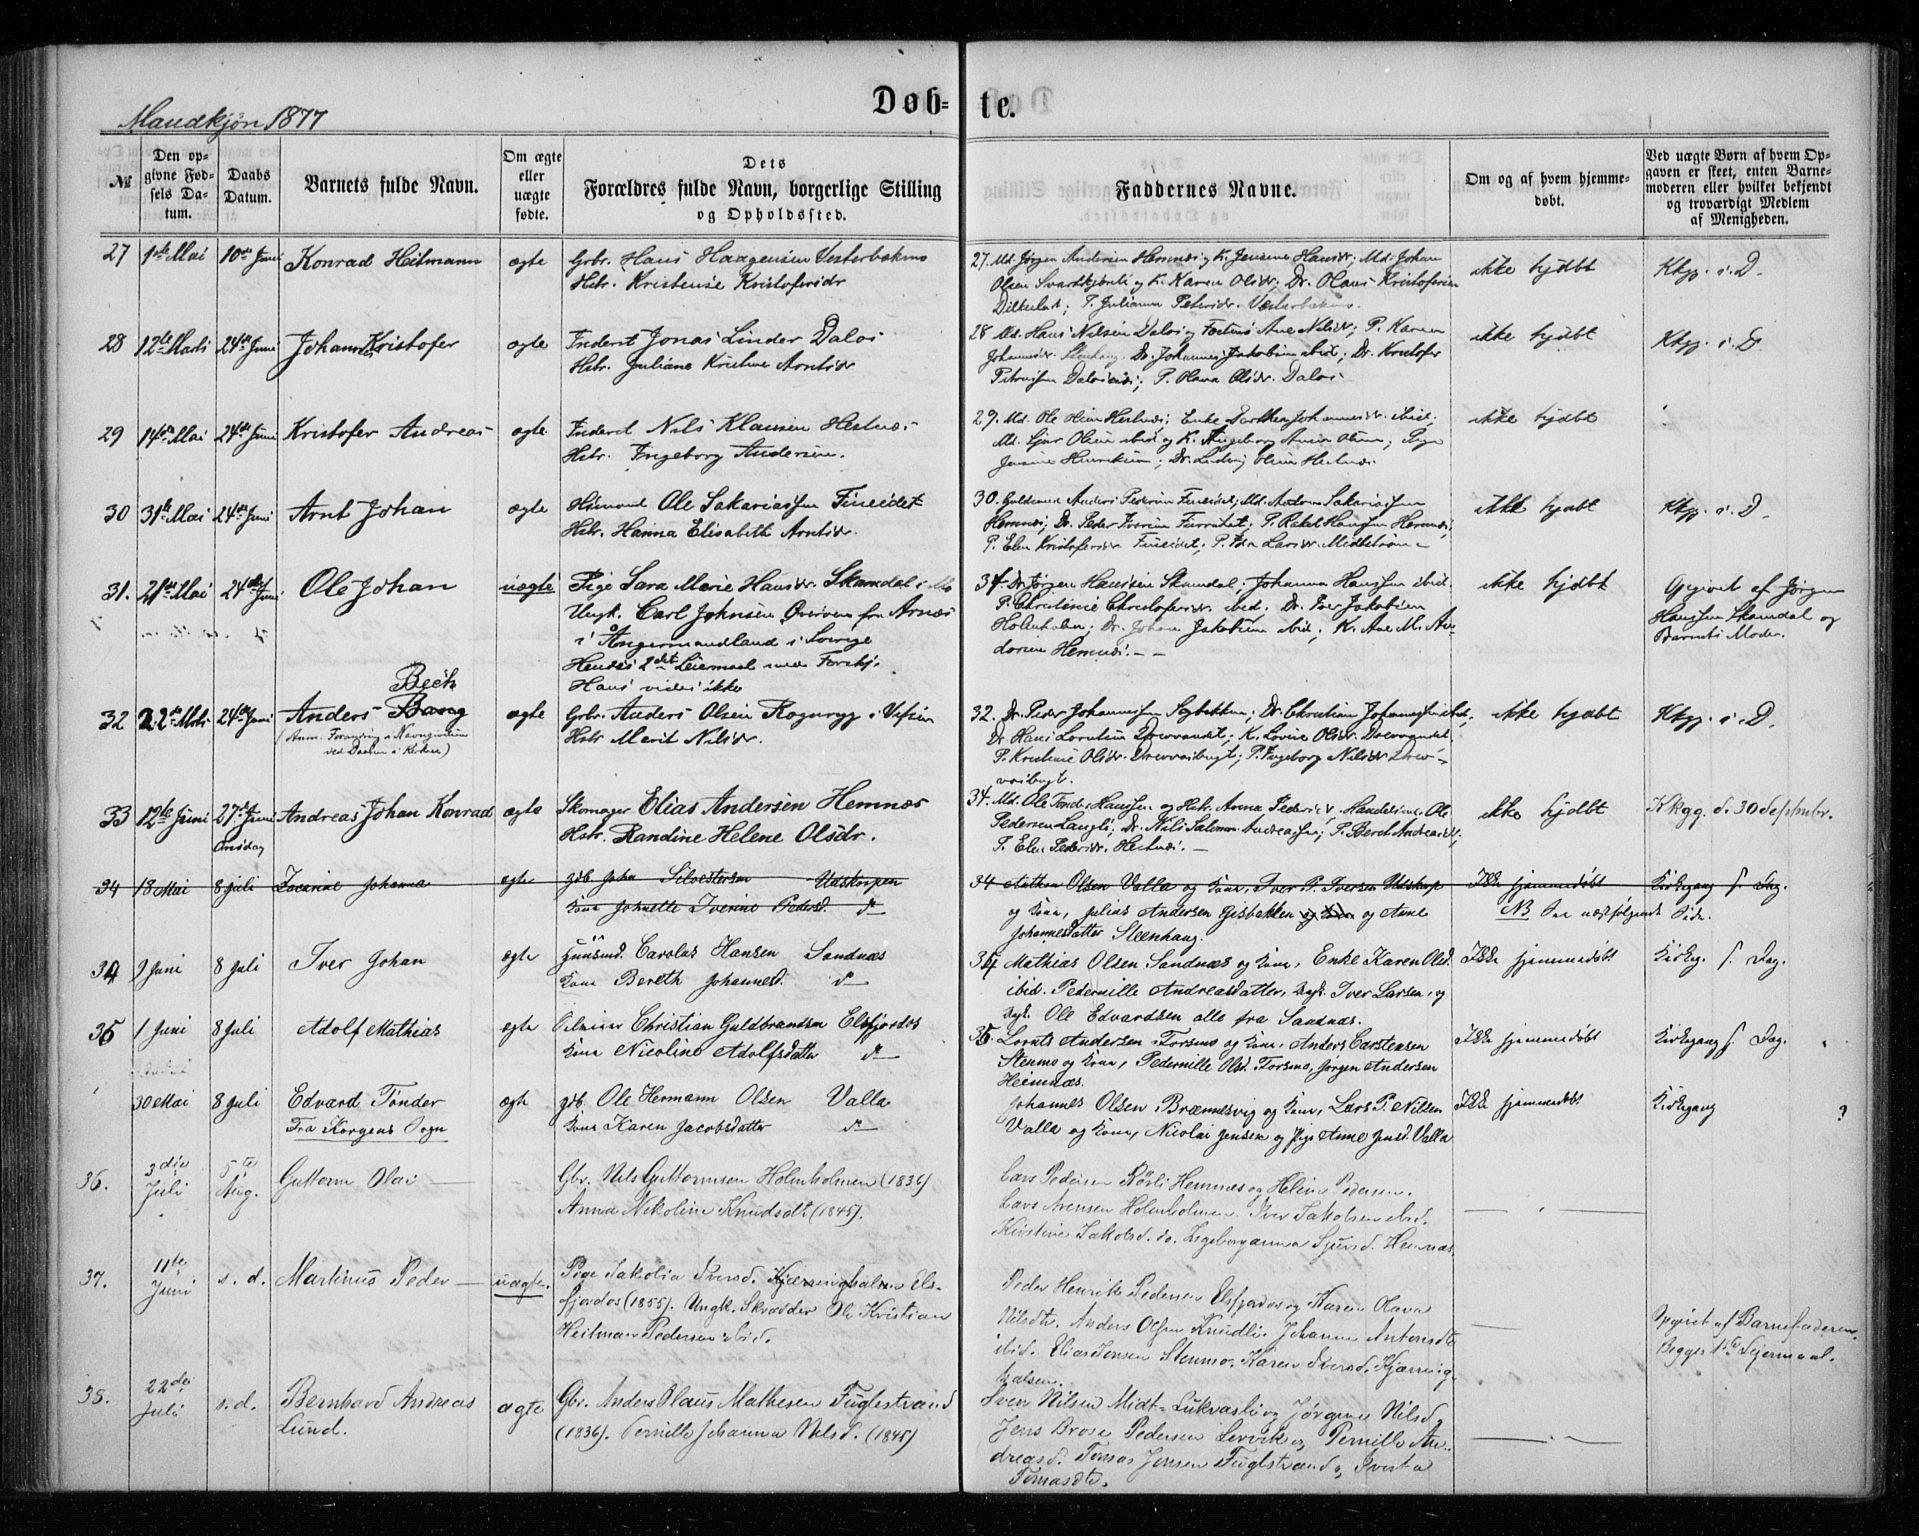 Døb- te.
Mandkjøn 1877
№
Den op-
givne Fød-
sels Da-
tum.
Daabs
Datum.
Barnets fulde Navn.
Om ægte
eller
uægte
fødte.
Dets
Forældres fulde Navn, borgerlige Stilling
og Opholdssted.
Faddernes Navne.
Om og af hvem hjemme-
døbt.
Ved uægte Børn af hvem Op-
gaven er skeet, enten Barne-
moderen eller hvilket bekjendt
og troværdigt Medlem
af Menigheden.
27 1ste Mai 10de Juni Konrad Heitmann ægte Grbr. Hans Haagensen Vesterbækmo
Hstr. Kristense Kristofersdr
27. Md. Jørgen Andersen Hemnæs og K. Jensine Hansdr; Md. Johan
Olsen og K. Karen Olsdr; Dr. Olaus Kristofersen
P. Julianna Petersdr.
ikke hjdbt Kkgg. s. D.
28 12te Marts 24de Juni Johannes Kristofer ægte Inderst Jonas Linder Dalos
Hstr. Juliane Kristine Arntsdr
28 Md. Hans Nilsen Dalos og Ane Nilsdr; P. Karen
Johannesdr Dr. Johannes Jakobsen ibid; Dr. Kristofer
P. Olava Olsdr. Dalos
ikke hjdbt Kkgg. s. D.
29 14de Mai 24de Juni Kristofer Andreas ægte Inderst Nils Klausen Hestnes
Hstr. Ingeborg Andersen.
29. Md. Ole Hestnes; Enke Johannesdr. ibid;
Md. Olsen ibid og K. Ingeborg Pige
Henriksen; Dr. Ludvig Olsen Hestnes
ikke hjdbt
30 31te Mai 24de Juni Arnt Johan ægte Husmand Ole Sakariassen Fineidet
Hstr. Hanna Elisabeth Arntsdr.
30. Anders Pedersen Fineidet; Md. Anders Sakariassen
Hemnes; Dr. Peder Iversen P. Rakel Hansen Hemnes;
P. Elen Kristofersdr Fineidet; P. Larsdr. Midtstrøm
ikke hjdbt Kkgg. s. D.
31. 21de Mai 24de Juni Ole Johan uægte Pige Sara Marie Hansdr. Skamdal i Mo
Ungk. Carl Johnsen fra Arnæs
i Ångermandland i Sverige
Hendes 2det Leiermaal
Hans vides ikke
31 Dr. Jørgen Hansen Skamdal; Johannes Hansen ibid.
P. Christine Christofersdr. ibid. Dr. Iver Jakobsen
Holmholm; Dr. Johan Jakobsen ibid. K. Ane M. An-
dorsen Hemnes. —
ikke hjdbt Opgivet af Jørgen
Hanssen Skamdal og
Barnets Moder.
Bech
32 22de Mts 24de Juni Anders Bang ægte Grbr. Anders Olsen Rognryg i Vefsen
Hstr Merit Nilsdr.
(Anm. Forandring i Navngivelsen
ved Daaben i Kirken)
32. Dr. Peder Johannessen Dr. Christian Johannessen ibid,
Dr. Hans Lorntsen Drevvandet, K. Lovise Olsdr. Drevvandet.
P. Kristine Olsdr. Drevvasbugt; P. Ingeborg Nilsdr Drev-
vasbugt.
ikke hjdbt Kkgg. s. D.
33 12te Juni 27de Juni
Onsdag Andreas Johan Konrad ægte Skomager Elias Andersen Hemnæs
Hstr. Randine Helene Olsdr.
34. Md. Ole Hanssen og Hstr. Anna Pedersdr, Ole
Pedersen Langli; Dr. Nils Salomon Andreassen; P. Beret Andreasdr;
P. Elen Pedersdr. Hestnes. —
ikke hjdbt Kkgg. d. 30 September.
34 18 Mai 8 Juli Zacarine Johanna ægte gdb. John Silvestersen Utskorpen
kone Johnette Iverine Pedersd. do
34 Anthon Olsen Valla og kone, Iver P. Iversen Utskorp
og kone, Julius Andersen Gisbakken og kone og Anne
Johannesdatter Steenhaug.
Ikke hjemmedøbt Kirkegang s. Dag.
NB See næstfølgende Side.
34 9 Juni 8 Juli Iver Johan ægte Huusmd. Carolus Hansen Sandnæs
kone Bereth Johannesd. do
34 Mathias Olsen Sandnæs og kone, Enke Karen Olsd.
ibid. Pedernille Andreasdatter, Ungk. Iver Larsen, og
Ungk. Ole Edvardsen alle fra Sandnæs.
Ikke hjemmedøbt Kirkeg. s. Dag.
35 1 Juni 8 Juli Adolf Mathias ægte Christian Guldbrandsen Elsfjordos
kone Nicoline Adolfsdatter do
35. Lornts Andersen Forsmo og kone, Anders Carstensen
Stenmo og kone, Pedernille Olsd. Forsmo, Jørgen Andersen
Hemnæs.
Ikke hjemmedøbt Kirkegang s. Dag.
30 Mai 8 Juli Edvard Tønder
Fra Korgens Sogn ægte gdb. Ole Hermann Olsen Valla
kone Karen Jacobsdatter do
Johannes Olsen Brænnesvig og kone, Lars P. Nilsen
Valla og kone, Nicolai Jensen og Pige Anne Jensd. Valla
Ikke hjemmedøbt Kirkegang ?
36. 3die
Juli 5te
Aug. Guttorm Olai — Gbr. Nils Guttormsen Holmholmen (1836)
Anna Nikoline Knudsdt (1845).
Lars Pedersen Rørli Hemnæs og Heline Pedersen.
Lars Arensen Holmholmen. Iver Jakobsen ibid.
Kirstine Jakobsd. do. Ingeborganna Sjursd. Hemnæs
37. 11te
Juni s. d. Martinus Peder — uægte. Pige Jakobia Iversd. Kjærringhalsen Els-
fjordos (1855). Ungk. Skrædder Ole Kristian
Heitman Pedersen ibid.
Peder Henrik Pedersen Elsfjordos og Karen Olava
Nilsdt. Anders Olsen Knudli. Johanna Antonsdt
ibid. Elias Jensen Stenmo. Karen Iversd. Kjærring-
halsen.
Opgivet af Barnefaderen.
Begges 1ste Lejermaal.
38. 22de
Juli s. d. Bernhard Andreas
Lund. ægte Gbr. Anders Olaus Mathisen Fuglestrand
(1836). Pernille Johanna Nilsd. (1845)
Sven Nilsen Midt-Lukvasli og Jørgine Nilsd.
Jens Brose Pedersen Lervik og Pernille An-
dreasd. Tomas Jensen Fuglstrand og Sverta
Tomasdt.